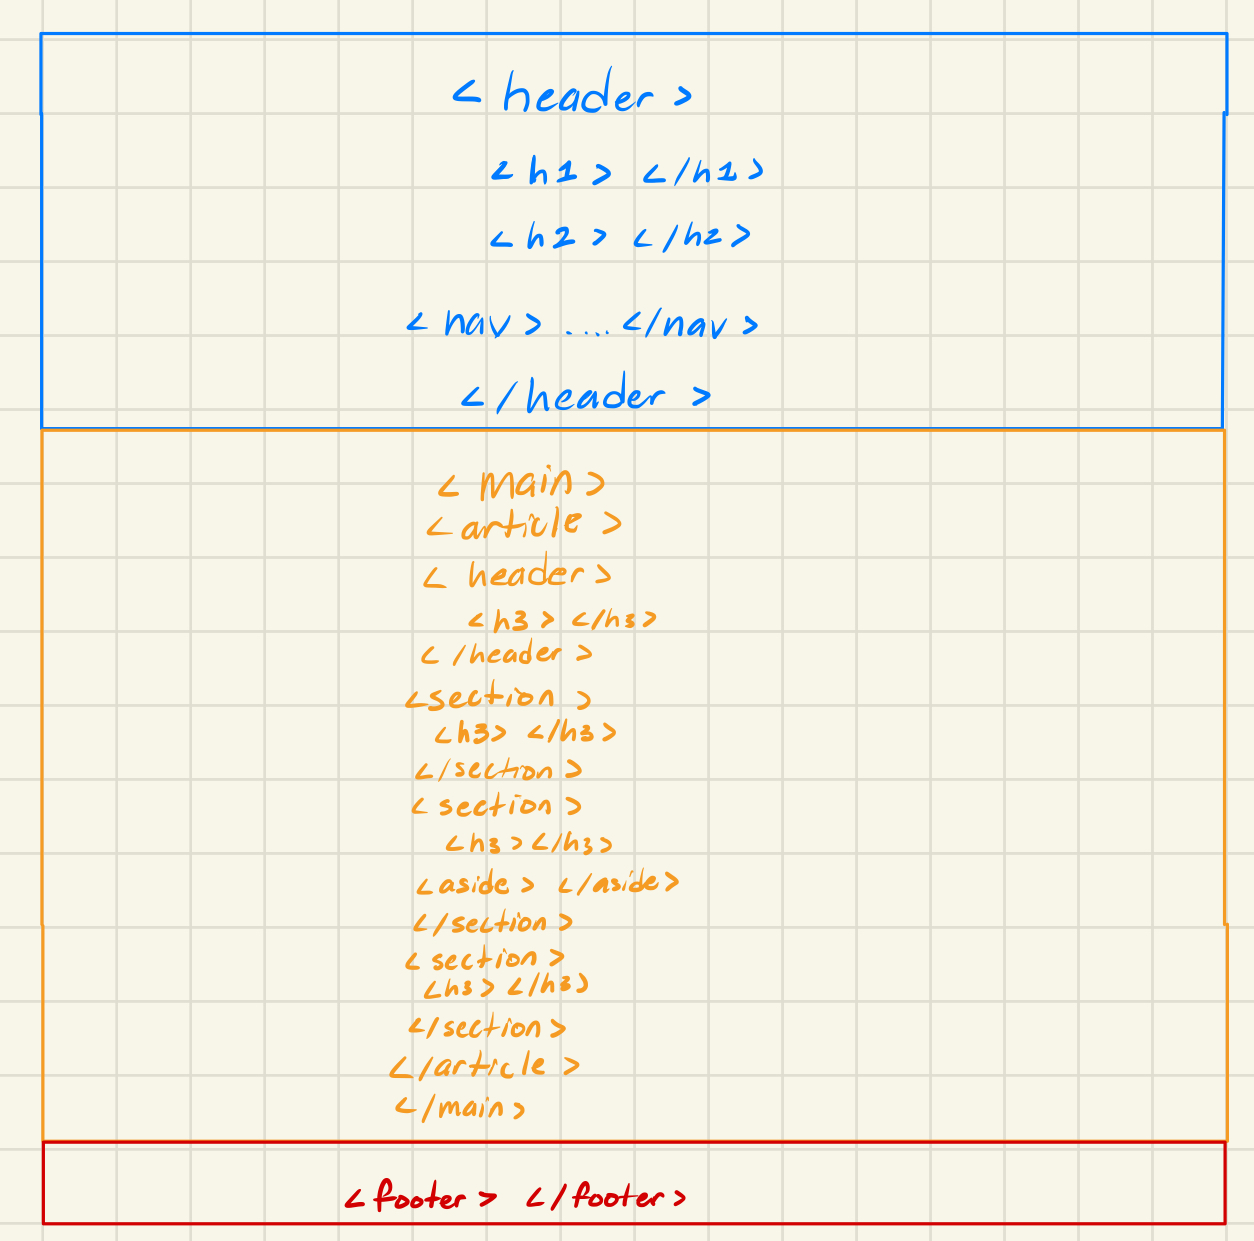 < header >
<h1> </h1>
<h2> </h2>
<nav> .... </nav>
</header>
<main>
<article>
<header>
<h3> </h3>
</header>
<section>
<h3> </h3>
</section>
<section>
<h3> </h3>
<aside> </aside>
</section>
<section>
<h3> </h3>
</section>
</article>
</main>
<footer> </footer>